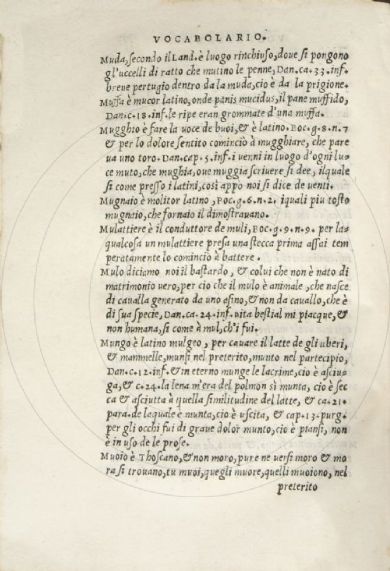 VOCABOLARIO.
Muda, secondo il Land. è luogo rinchiuso, doue si pongono
gl'uccelli di ratto che mutino le penne, Dan. ca. 33. inf.
breue pertugio dentro da la muda, cio è da la prigione.
Muffa è mucor latino, onde panis mucidus, il pane muffido,
Dan. c. 18. inf. le ripe eran grommate d'una muffa.
Mugghio è fare la uoce de buoi, & è latino. Boc. g. 8. n. 7
& per lo dolore sentito cominciò à mugghiare, che pare
ua uno toro. Dan. cap. 5. inf. i uenni in luogo d'ogni lu=
ce muto, che mughia, oue muggia scriuere si dee, ilquale
si come presso i latini, così appo noi si dice de uenti.
Mugnaio è molitor latino, Boc. g. 6. n. 2. iquali piu tosto
mugnaio, che fornaio il dimostrauano.
Mulattiere è il conduttore de muli, Boc. g. 9. n. 9. per la=
qualcosa un mulattiere presa una stecca prima assai tem
peratamente lo cominciò à battere.
Mulo diciamo noi il bastardo, & colui che non è nato di
matrimonio uero, per cio che il mulo è animale, che nasce
di caualla generato da uno asino, & non da cauallo, che è
di sua specie, Dan. ca. 24. inf. uita bestial mi piacque, &
non humana, si come à mul, ch'i fui.
Mungo è latino mulgeo, per cauare il latte de gli uberi,
& mammelle, munsi nel preterito, munto nel participio,
Dan. c. 12. inf. & in eterno munge le lacrime, cio è asciu=
ga, & c. 24. la lena m'era del polmon sì munta, cio è sec
ca & asciutta à quella similitudine del latte, & ca. 21.
para. de laquale è munta, cio è uscita, & cap. 13. purg.
per gli occhi fui di graue dolor munto, cio è piansi, non
è in uso de le prose.
Muoio è Thoscano, & non moro, pur e ne uersi moro & mo
ra si trouano, tu muoi, quegli muore, quelli muoiono, nel
preterito